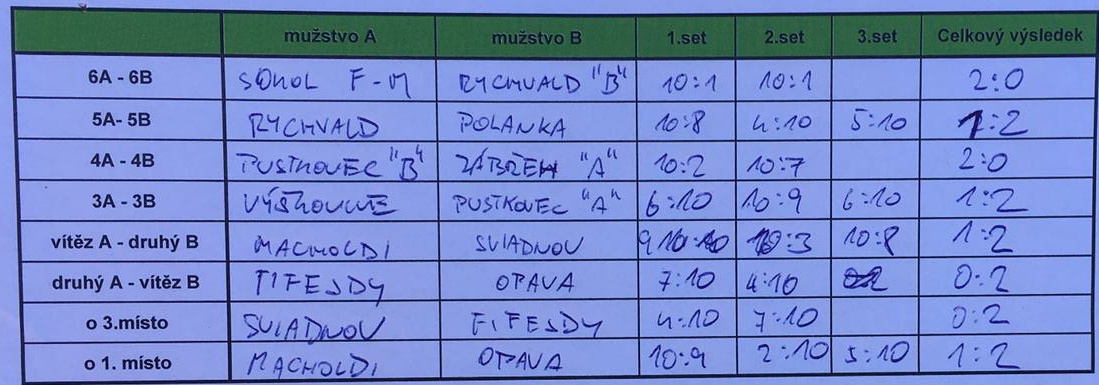 mužstvo A mužstvo B 1.set 2.set 3.set Celkový výsledek
6A - 6B SOKOL F-M RYCHVALD "B" 10:1 10:1 2:0
5A- 5B RYCHVALD POLANKA 10:8 4:10 5:10 1:2
4A - 4B PUSTKOVEC "B" ZÁBŘEH "A" 10:2 10:7 2:0
3A - 3B VÝŠKOVICE PUSTKOVEC "A" 6:10 10:9 6:10 1:2
vítěz A - druhý B MACHOLDI SVIADNOV 10:8 1:2
druhý A - vítěz B FIFEJDY OPAVA 7:10 4:10 0:2
o 3.místo SVIADNOV FIFEJDY 4:10 7:10 0:2
o 1. místo MACHOLDI OPAVA 10:9 2:10 5:10 1:2